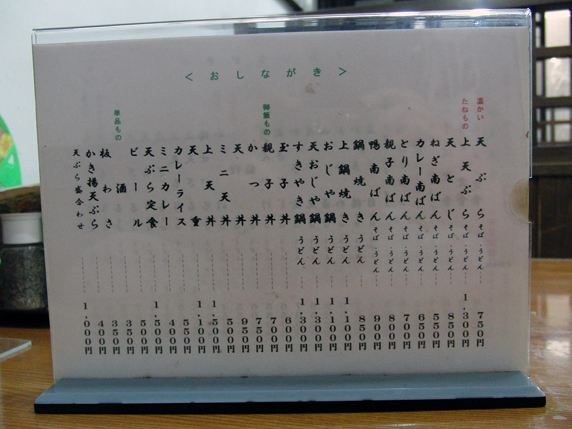 <おしながき>
温かい
たねもの
天ぷら そば・うどん 750円
上天ぷら そば・うどん 1,300円
天とじ そば・うどん 750円
ねぎ南ばん そば・うどん 550円
カレー南ばん そば・うどん 650円
とり南ばん そば・うどん 550円
親子南ばん そば・うどん 700円
鴨南ばん そば・うどん 900円
鍋焼き うどん 850円
上鍋焼き うどん 1,100円
おじや鍋
天おじや鍋 1,100円
すきやき鍋 うどん 1,300円
御飯もの
玉子丼 600円
親子丼 700円
かつ丼 750円
天丼 950円
ミニ天丼 500円
上天丼 1,500円
天重 1,100円
カレーライス 500円
ミニカレー 400円
天ぷら定食 1,500円
単品もの
ビール 500円
酒 350円
板わさ 350円
かき揚天ぷら 400円
天ぷら盛合わせ 1,000円